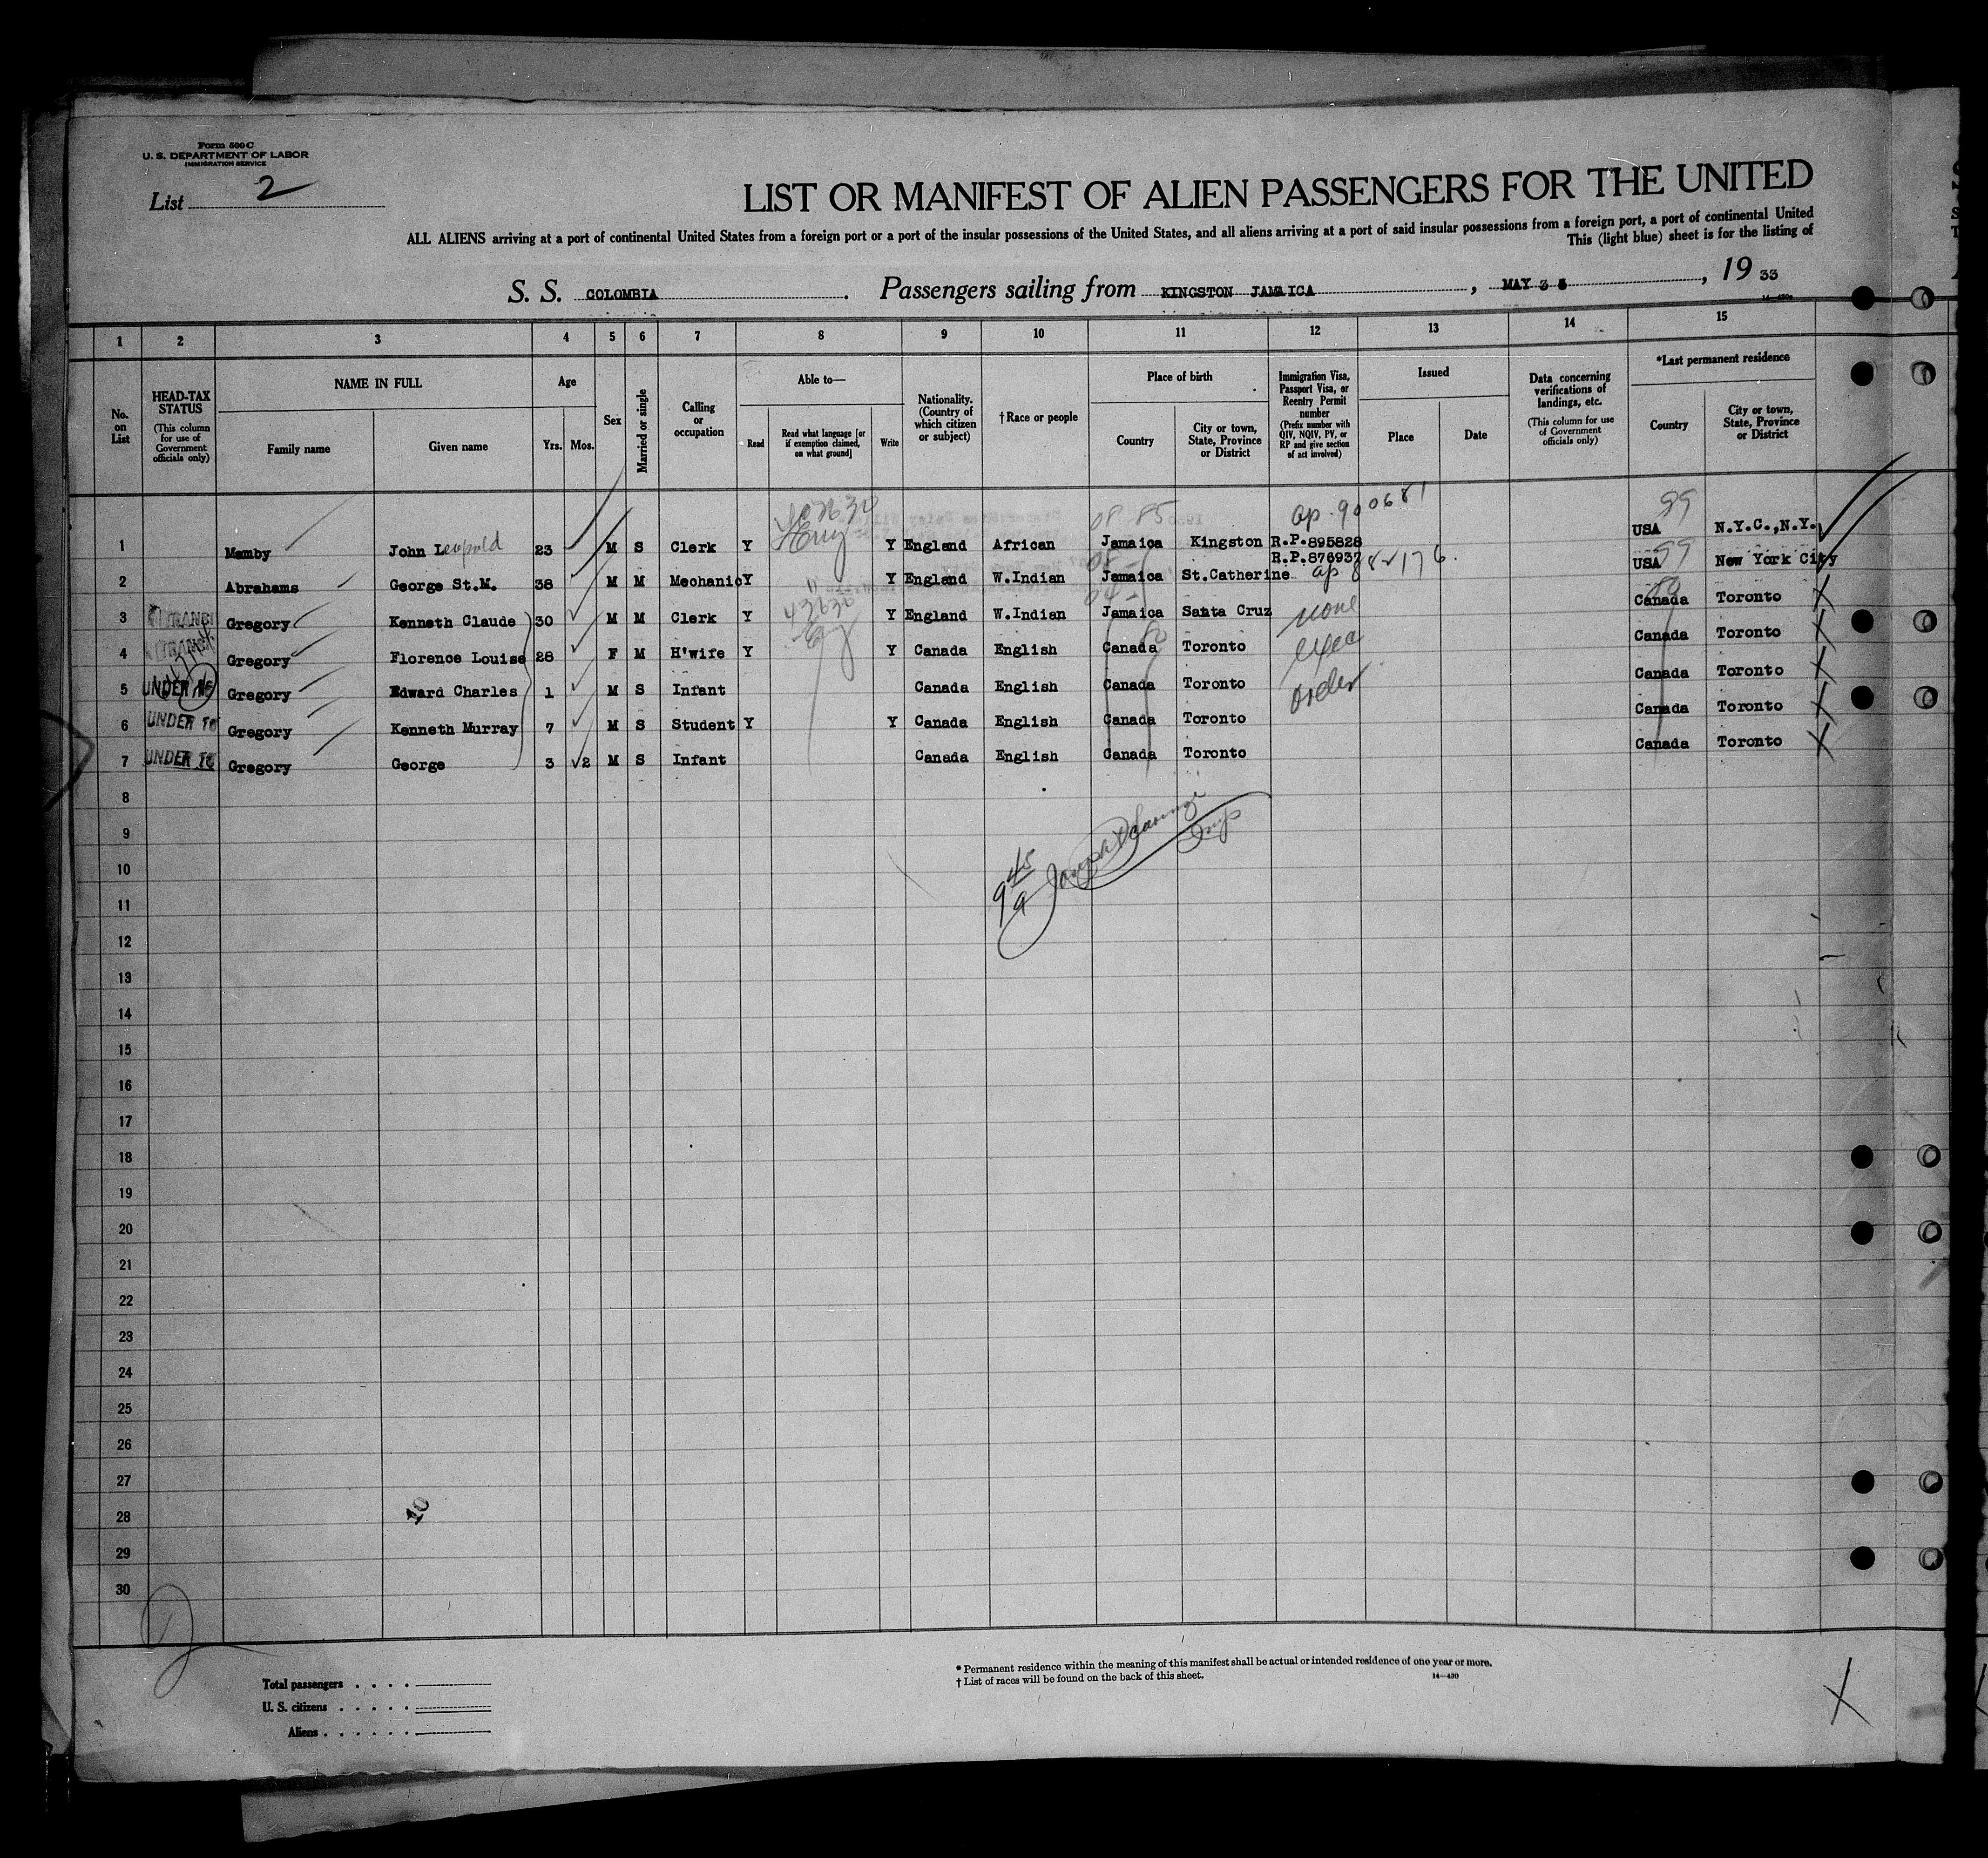 Form 500 C
U. S. DEPARTMENT OF LABOR
IMMIGRATION SERVICE
List 2
LIST OR MANIFEST OF ALIEN PASSENGERS FOR THE UNITED
ALL ALIENS arriving at a port of continental United States from a foreign port or a port of the insular possessions of the United States, and all aliens arriving at a port of said insular possessions from a foreign port, a port of continental United
This (light blue) sheet is for the listing of
S. S. COLOMBIA. Passengers sailing from KINGSTON JAMAICA, MAY 3, 1933
14-430
1 2 3 4 5 6 7 8 9 10 11 12 13 14 15
No. on List
HEAD-TAX STATUS (This column for use of Government officials only)
NAME IN FULL
Family name
Given name
Age
Yrs. Mos.
Sex
Married or single
Calling or occupation
Able to—
Read
Read what language [or if exemption claimed, on what ground]
Write
Nationality. (Country of which citizen or subject)
†Race or people
Place of birth
Country
City or town, State, Province or District
Immigration Visa, Passport Visa, or Reentry Permit number (Prefix number with QIV, NQIV, PV, or RP and give section of act involved)
Issued
Place
Date
Data concerning verifications of landings, etc. (This column for use of Government officials only)
*Last permanent residence
Country
City or town, State, Province or District
ap. 900681
99
1 Mamby John Leopold 23 M S Clerk Y Eng Y England African Jamaica Kingston R.P.895828 USA N.Y.C.,N.Y.
2 Abrahams George St.M. 38 M M Mechanic Y " Y England W.Indian Jamaica St.Catherine R.P.876937 ap 882176 USA 99 New York City
3 Gregory Kenneth Claude 30 M M Clerk Y Y England W.Indian Jamaica Santa Cruz none Canada Toronto
4 Gregory Florence Louise 28 F M H'wife Y Eng Y Canada English Canada Toronto exec Canada Toronto
5 UNDER 16 Gregory Edward Charles 1 M S Infant Canada English Canada Toronto order Canada Toronto
6 UNDER 16 Gregory Kenneth Murray 7 M S Student Y Y Canada English Canada Toronto Canada Toronto
7 UNDER 16 Gregory George 3 2 M S Infant Canada English Canada Toronto Canada Toronto
8
9
10
11
12
13
14
15
16
17
18
19
20
21
22
23
24
25
26
27
28
29
30
9 45 a Joseph Insp
10
Total passengers
U. S. citizens
Aliens
* Permanent residence within the meaning of this manifest shall be actual or intended residence of one year or more.
† List of races will be found on the back of this sheet. 14-430